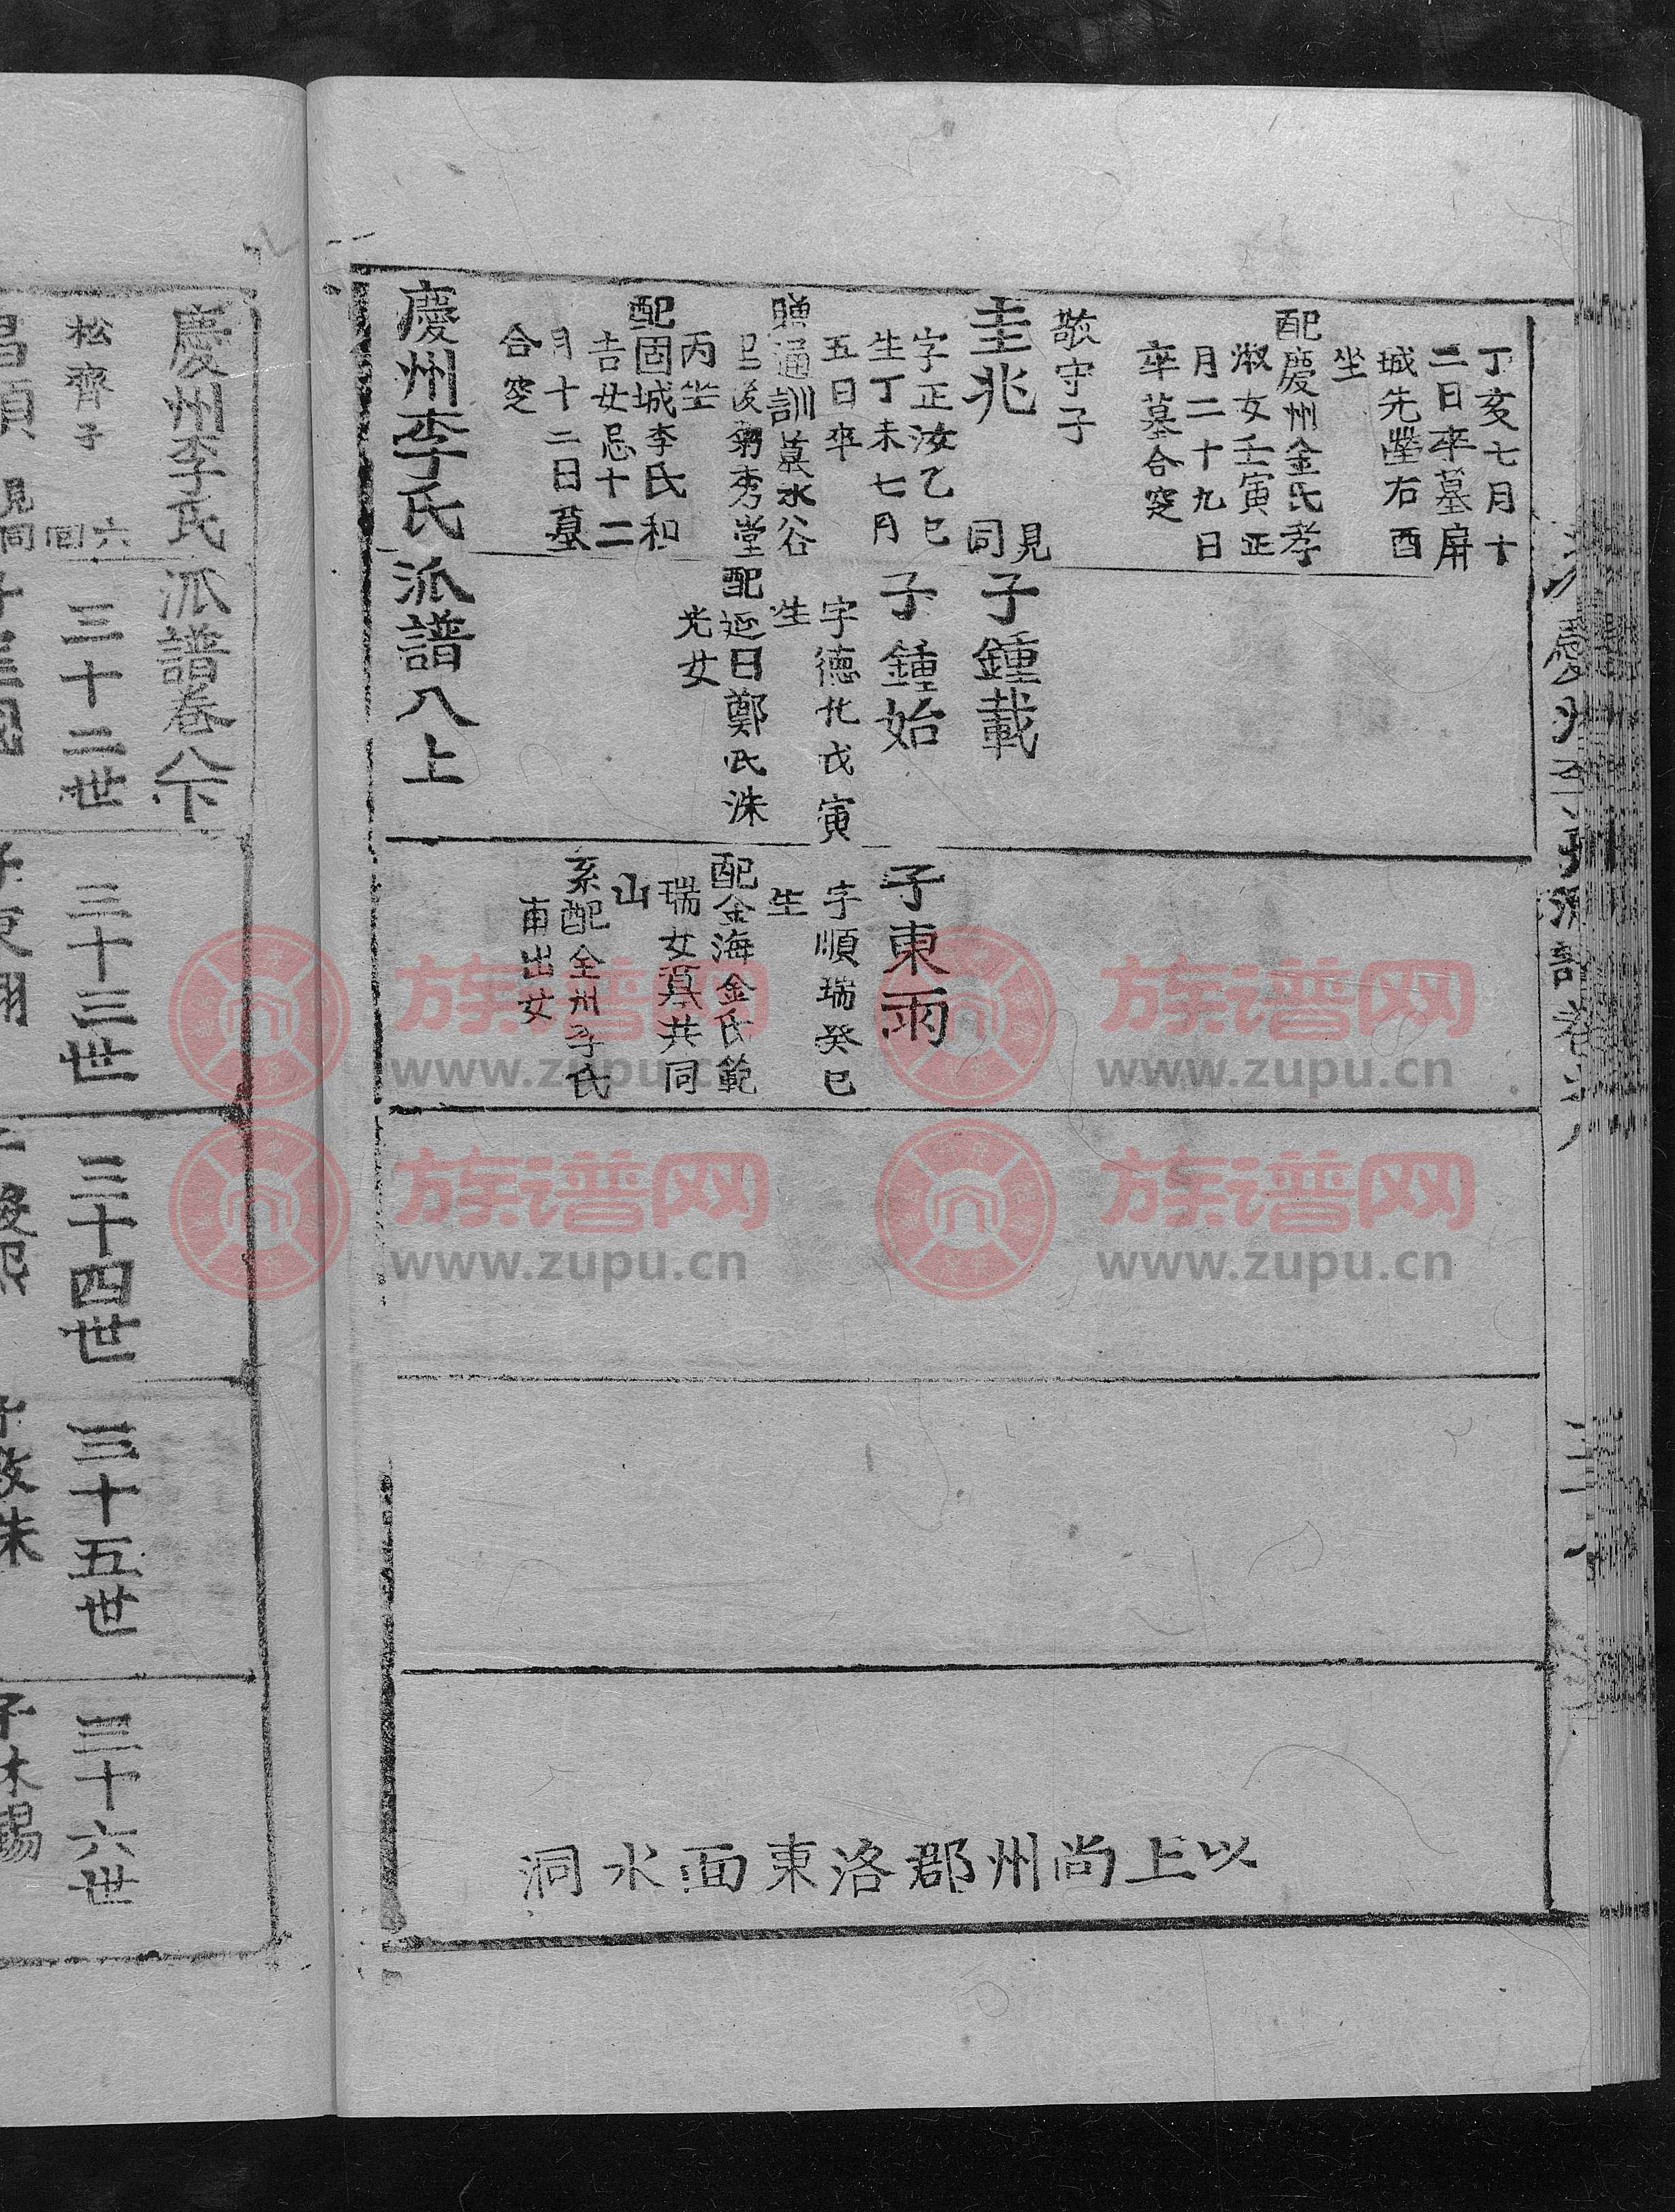 丁亥七月十
二日卒墓屏
城先塋右酉
坐
配慶州金氏孝
淑女壬寅正
月二十九日
卒墓合窆
敬守子
圭兆 見同
字正汝乙巳
生丁未七月
五日卒
贈通訓墓水谷
後菊秀堂
丙坐
配固城李氏和
吉女忌十二
月十二日墓
合窆
子鍾載
子鍾始
字德化戊寅
生
配延日鄭氏洙
光女
子東雨
字順瑞癸巳
生
配金海金氏範
瑞女墓共同
山
系配全州李氏
甫出女
以上尚州郡洛東面水洞
慶州李氏派譜八上
慶州李氏派譜卷八下
松齊子
六
三十二世
三十三世
三十四世
三十五世
三十六世
族谱网
www.zupu.cn
族谱网
www.zupu.cn
族谱网
www.zupu.cn
族谱网
www.zupu.cn